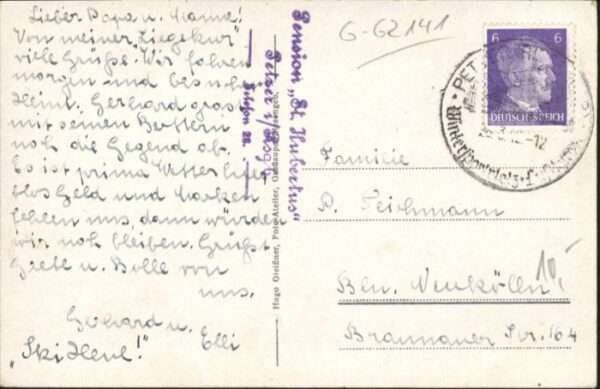 Lieber Papa u. Mama!
Von meiner "Liegekur"
viele Grüße. Wir fahren
morgen und
Heim. Gerhard gras
mit seinen Brettern
noch die Gegend ab.
Es ist prima Wetter hier
blos Geld und Marken
fehlen uns, dann würden
wir noch bleiben. Grüßt
Grete u. Bolle von
uns.
Gerhard u.
Elli
"Ski Heul!"
Pension "St. Hubertus"
Petzer / Rsgb.
Telefon 22.
Hugo Greißner, Foto-Atelier,
G-62141
6 6
DEUTSCHES REICH
PET
-12
Familie
P. Teichmann
Bln. Neukölln
10.-
Braunauer Str. 164